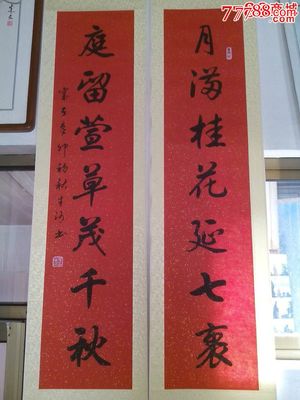 7788商城
月满桂花延七
庭留萱草茂千秋
癸卯初秋
书